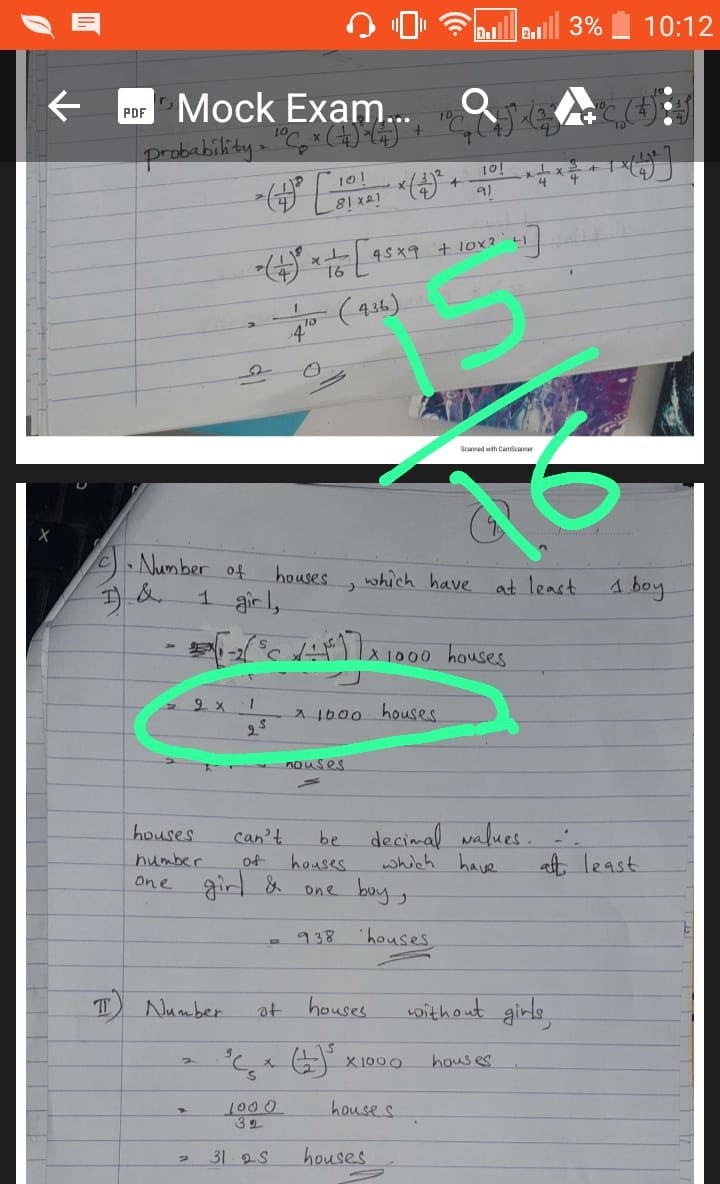 3% 10:12
PDF Mock Exam...
probability = ¹⁰C₈ × (1/4)⁸ × (3/4)² + ¹⁰C₉ (1/4)⁹ × (3/4) ¹⁰C₁₀ (1/4)¹⁰
= (1/4)⁸ [ 10!/8!×2! × (3/4)² + 10!/9! × 1/4 × 3/4 + 1 × (1/4)² ]
= (1/4)⁸ × 1/16 [ 45×9 + 10×3 +1 ]
= 1/4¹⁰ (436)
≏ 0
15/16
Scanned with CamScanner
X
c). Number of houses, which have at least 1 boy
I) & 1 girl,
× 1000 houses
= 2 × 1/2⁵ × 1000 houses
= houses
houses can't be decimal values. ∴
number of houses which have at least
one girl & one boy,
= 938 houses
II) Number of houses without girls,
= ⁵C₅ × (1/2)⁵ × 1000 houses.
= 1000/32 houses.
= 31.25 houses